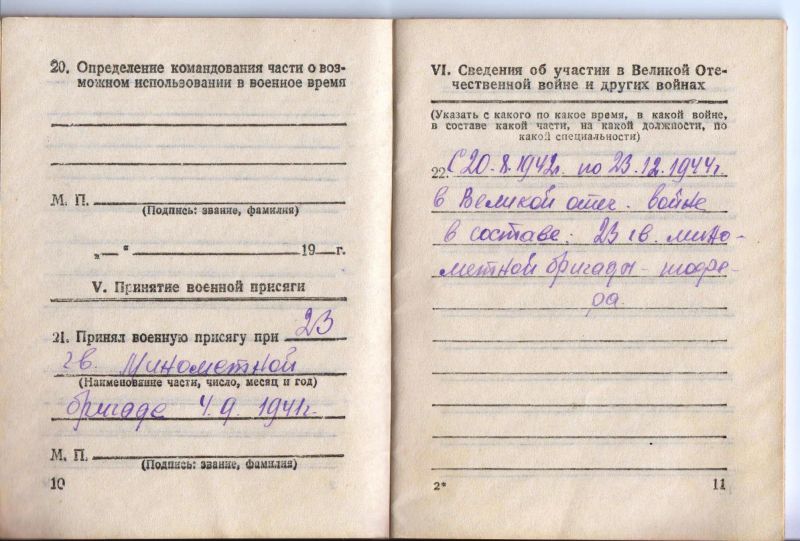 20. Определение командования части о воз-
можном использовании в военное время
М. П.
(Подпись: звание, фамилия)
„ — “ 19 — г.
V. Принятие военной присяги
21. Принял военную присягу при 23
гв. Минометной
(Наименование части, число, месяц и год)
бригаде 4.9. 1941г.
М. П.
(Подпись: звание, фамилия)
10
VI. Сведения об участии в Великой Оте-
чественной войне и других войнах
(Указать с какого по какое время, в какой войне,
в составе какой части, на какой должности, по
какой специальности)
22. С 20.8.1942г. по 23.12.1944г.
в Великой отеч. войне
в составе. 23 гв. мино-
метной бригады - шофе-
ра.
2*
11